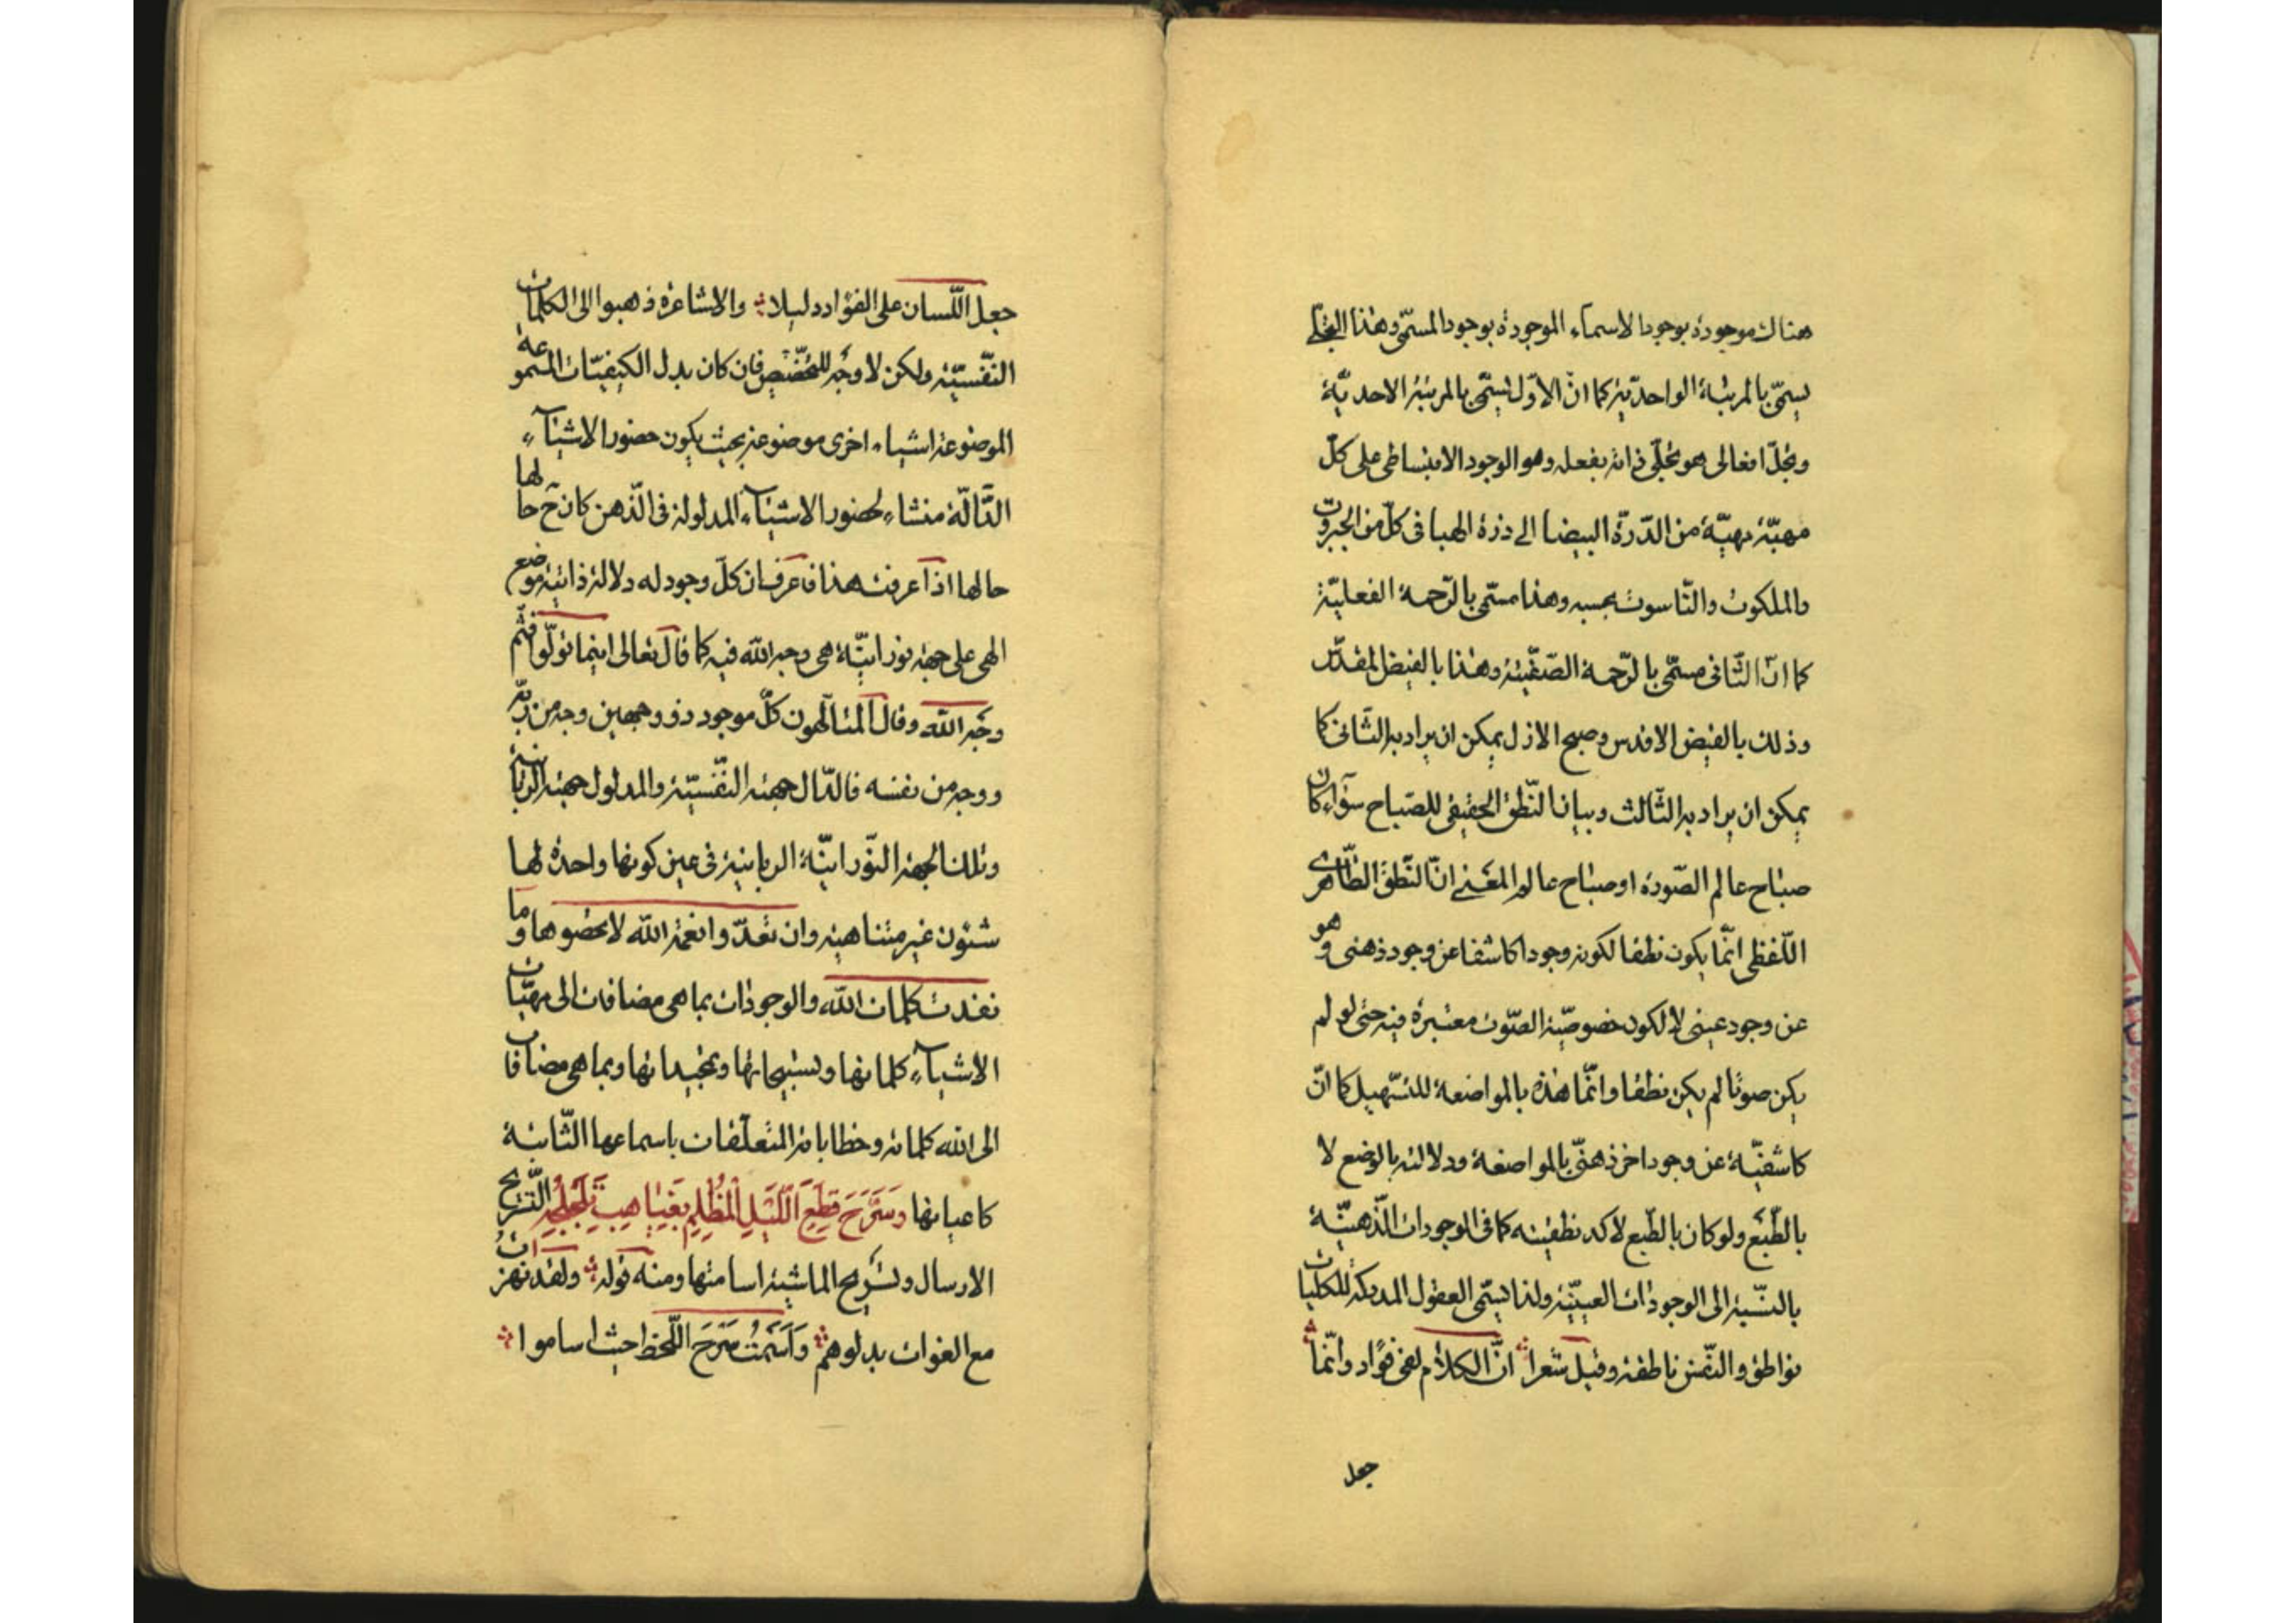 هناك موجودة بوجود الاسماء الموجودة بوجود المسمّى وهذا التجلّى
يسمّى بالمرتبة الواحديّة كما انّ الاوّل يسمّى بالمرتبة الاحديّة
وتجلّ افعالى هو تجلّى ذاته بفعله وهو الوجود الانبساطى على كلّ
مهيّة مهيّة من الدّرّة البيضا الى ذرة الهبا فى كلّ من الجبروت
والملكوت والنّاسوت بحسبه وهذا مسمّى بالرّحمة الفعليّة
كما انّ الثّانى مسمّى بالرّحمة الصّفتيّة وهذا بالفيض المقدّس
وذلك بالفيض الاقدس وصبح الازل يمكن ان يراد به الثّانى كما
يمكن ان يراد به الثّالث وبيان النّطق الحقيقى للصّباح سوآء كان
صباح عالم الصّورة او صباح عالم المعنى انّ النّطق الظّاهرى
اللّفظى انّما يكون نطقا لكونه وجودا كاشفا عن وجود ذهنى وهو
عن وجود عينى لا لكون خصوصيّة الصّوت معتبرة فيه حتى لو لم
يكن صوتا لم يكن نطقا وانّما هذه بالمواضعة للتّسهيل كما انّ
كاشفيّة عن وجود اخر ذهنىّ بالمواضعة ودلالته بالوضع لا
بالطّبع ولو كان بالطّبع لاكد نطقيته كما فى الوجودات الذّهنيّة
بالنّسبة الى الوجودات العينيّة ولذا يسمّى العقول المدركة للكليات
نواطق والنّفس ناطقة وقيل شعرا انّ الكلام لفى فؤاد وانّما
جعل
جعل اللّسان على الفؤاد دليلا والاشاعرة ذهبوا الى الكلمات
النّفسيّة ولكن لا وجه للتخصّيص فان كان بدل الكيفيّات المسموعة
الموضوعة اشياء اخرى موضوعة بحيث يكون حضور الاشيآء
الدّالّة منشاء لحضور الاشيآء المدلولة فى الذّهن كان ح حالها
حالها اذا عرفت هذا فاعرف ان كلّ وجود له دلالة ذاتية موضع
الهى على جهة نورانيّة هى وجه الله فيه كما قال تعالى اينما تولّوا فثمّ
وجه الله وقال المتالّهون كلّ موجود ذو وجهين وجه من ربّه
ووجه من نفسه فالدّال جهته النّفسيّة والمدلول جهته الربّانية
وتلك الجهة النّورانيّة الربانية فى عين كونها واحدة لها
شئون غير متناهية وان تعدّوا نعمة الله لا تحصوها وما
نفدت كلمات الله والوجودات بما هى مضافات الى مهيّات
الاشيآء كلماتها وتسبيحاتها وتمجيداتها وبما هى مضافات
الى الله كلماته وخطاباته المتعلّقات باسماعها الثّابتة
كاعيانها وَسَرَّحَ قِطَعَ اللَّيْلِ الْمُظْلِمِ بِغَيَاهِبِ تَلَجْلُجِهِ التّسريح
الارسال وتسريح الماشية اسامتها ومنه قوله ولقد نهزات
مع الغوات بدلوهم وَاَسَمْتُ سَرْحَ اللّحظ حيث اساموا